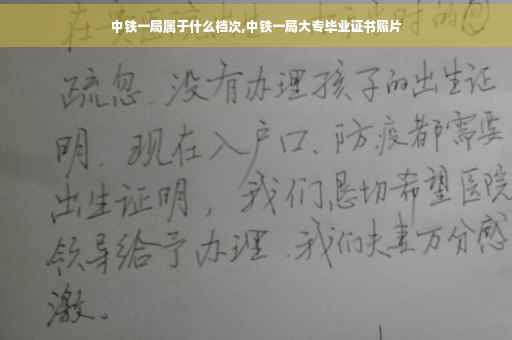 中铁一局属于什么档次,中铁一局大专毕业证书照片
疏忽、没有办理孩子的出生证
明、现在入户口、防疫都需要
出生证明，我们恳切希望医院
领导给予办理、我们夫妻万分感
激。